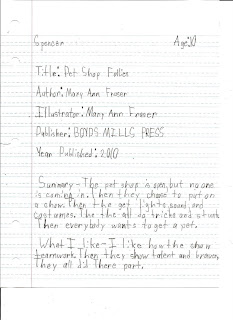 Spencer Age:10
Title: Pet Shop Follies
Author: Mary Ann Fraser
Illustrator: Mary Ann Fraser
Publisher: BOYDS MILLS PRESS
Year Published: 2010
Summary- The pet shop is open, but no one
is coming in. Then they choose to put on
a show. Then the get lights, sound, and
costumes. The the all do tricks and stunts
Then everybody wants to get a pet.
What I like- I like how the show
teamwork. Then they show talent and bravery
They all did there part.